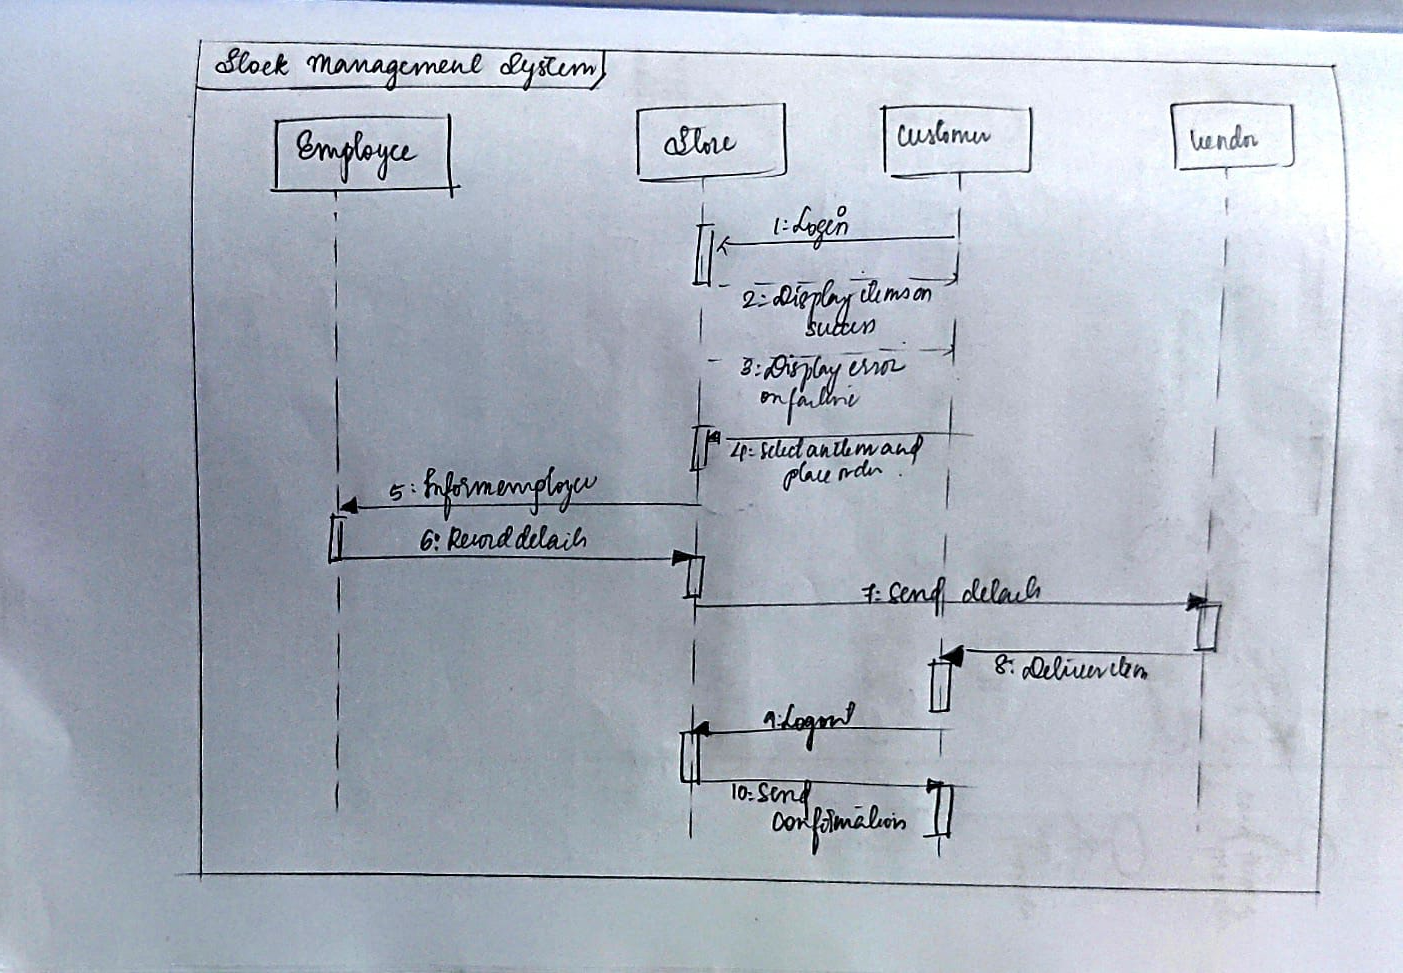 Stock Management System
Employee
Store
Customer
Vendor
1: Login
2: Display items on
success
3: Display error
on failure
4: Select an item and
place order.
5: Inform employee
6: Record details
7: Send details
8: Deliver item
9: Logout
10: Send
Conformation